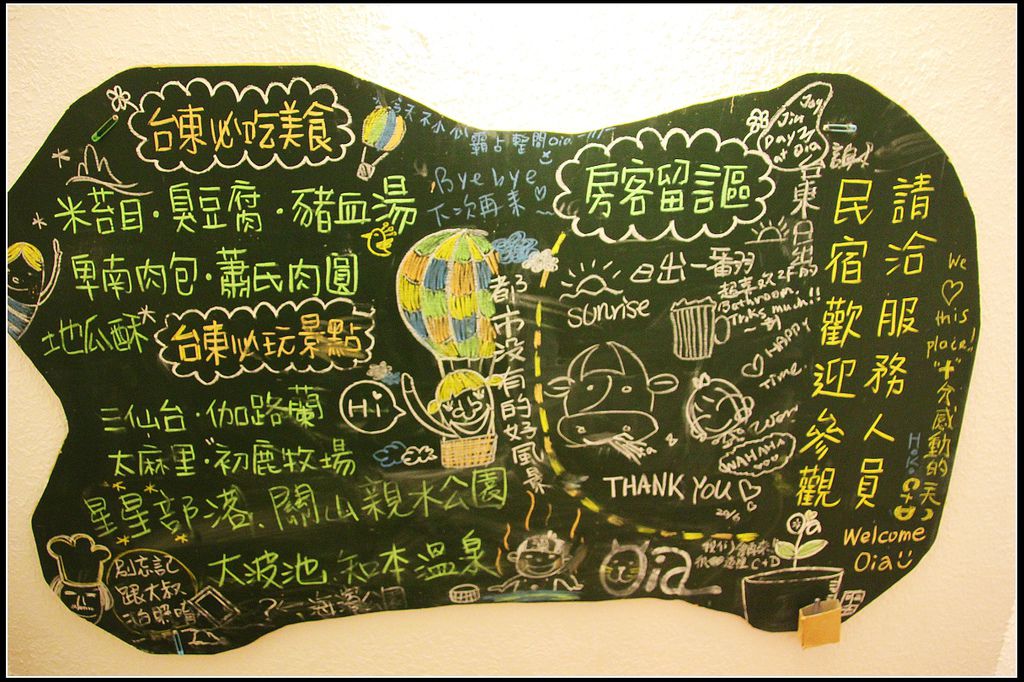 台東必吃美食
米苔目·臭豆腐·豬血湯
卑南肉包·蕭氏肉圓
地瓜酥
台東必玩景點
三仙台·伽路蘭
太麻里·初鹿牧場
星星部落、關山親水公園
大波池、知本溫泉
別忘記
跟大叔
Hi
都市沒有的好風景
霸占整間Oia
Bye bye
下次再來
房客留謳
日出一番
sunrise
THANK YOU
Jay
Jin
Day
at Oia
台東日出的
超喜歡2F的
Bathroom.
HAPPY
Time.
WAHAHA
請洽服務人員
民宿歡迎參觀
We
this
place!
十分感動的一天
Welcome
Oia
Oia
C+D